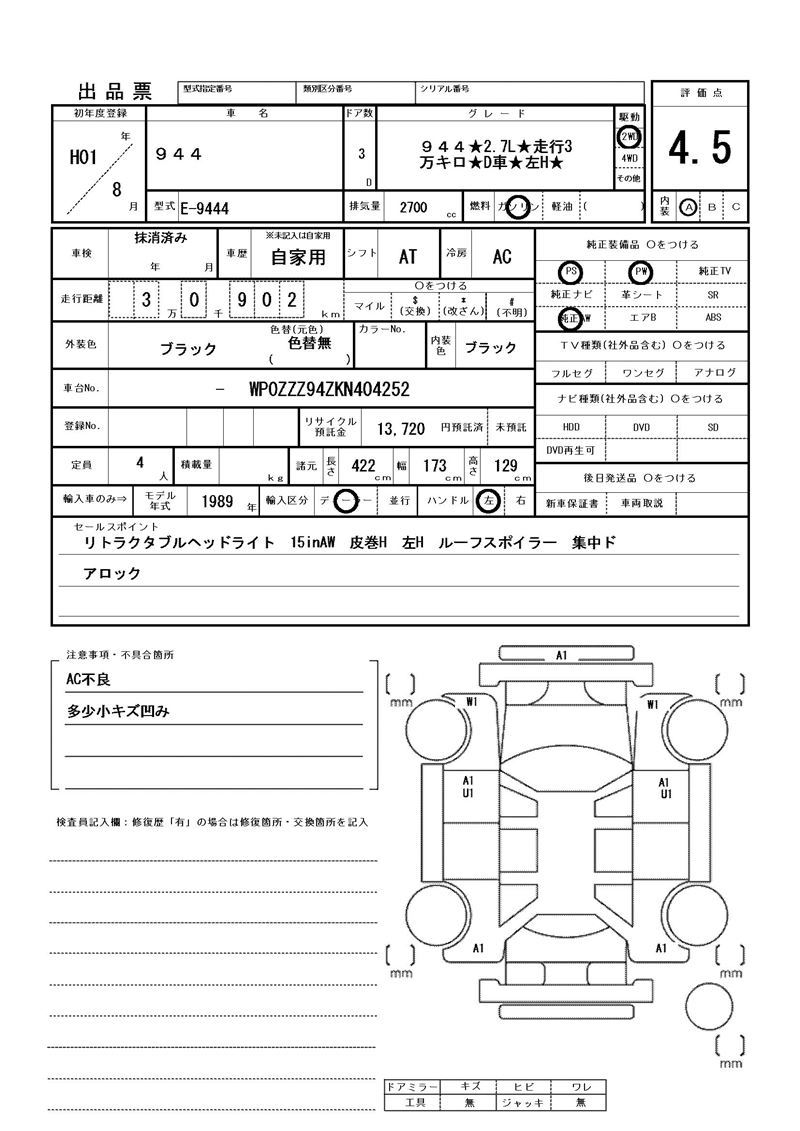 出品票
型式指定番号 類別区分番号 シリアル番号
評価点
4.5
内装 A B C
初年度登録 車名 ドア数 グレード 駆動
H01 年 8 月
944
3 D
944★2.7L★走行3
万キロ★D車★左H★
2WD
4WD
その他
型式 E-9444 排気量 2700 cc 燃料 ガソリン 軽油 ( )
車検 抹消済み 年 月 車歴 ※未記入は自家用 自家用 シフト AT 冷房 AC
走行距離 3 万 0 千 9 0 2 km
○をつける
マイル $(交換) *(改ざん) #(不明)
外装色 ブラック 色替(元色) 色替無 ( ) カラーNo. 内装色 ブラック
車台No. － WP0ZZZ94ZKN404252
登録No. リサイクル預託金 13,720 円預託済 未預託
定員 4 人 積載量 kg 諸元 長さ 422 cm 幅 173 cm 高さ 129 cm
輸入車のみ⇒ モデル年式 1989 年 輸入区分 ディーラー 並行 ハンドル 左 右
純正装備品 ○をつける
PS PW 純正TV
純正ナビ 革シート SR
純正AW エアB ABS
TV種類(社外品含む) ○をつける
フルセグ ワンセグ アナログ
ナビ種類(社外品含む) ○をつける
HDD DVD SD
DVD再生可
後日発送品 ○をつける
新車保証書 車両取説
セールスポイント
リトラクタブルヘッドライト 15inAW 皮巻H 左H ルーフスポイラー 集中ド
アロック
注意事項・不具合箇所
AC不良
多少小キズ凹み
検査員記入欄：修復歴「有」の場合は修復箇所・交換箇所を記入
A1
mm mm
W1 W1
A1 A1
U1 U1
A1 A1
mm mm
mm
ドアミラー キズ ヒビ ワレ
工具 無 ジャッキ 無